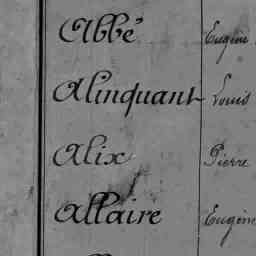 Abbé Eugène
Alinquant Louis
Alix Pierre
Allaire Eugène